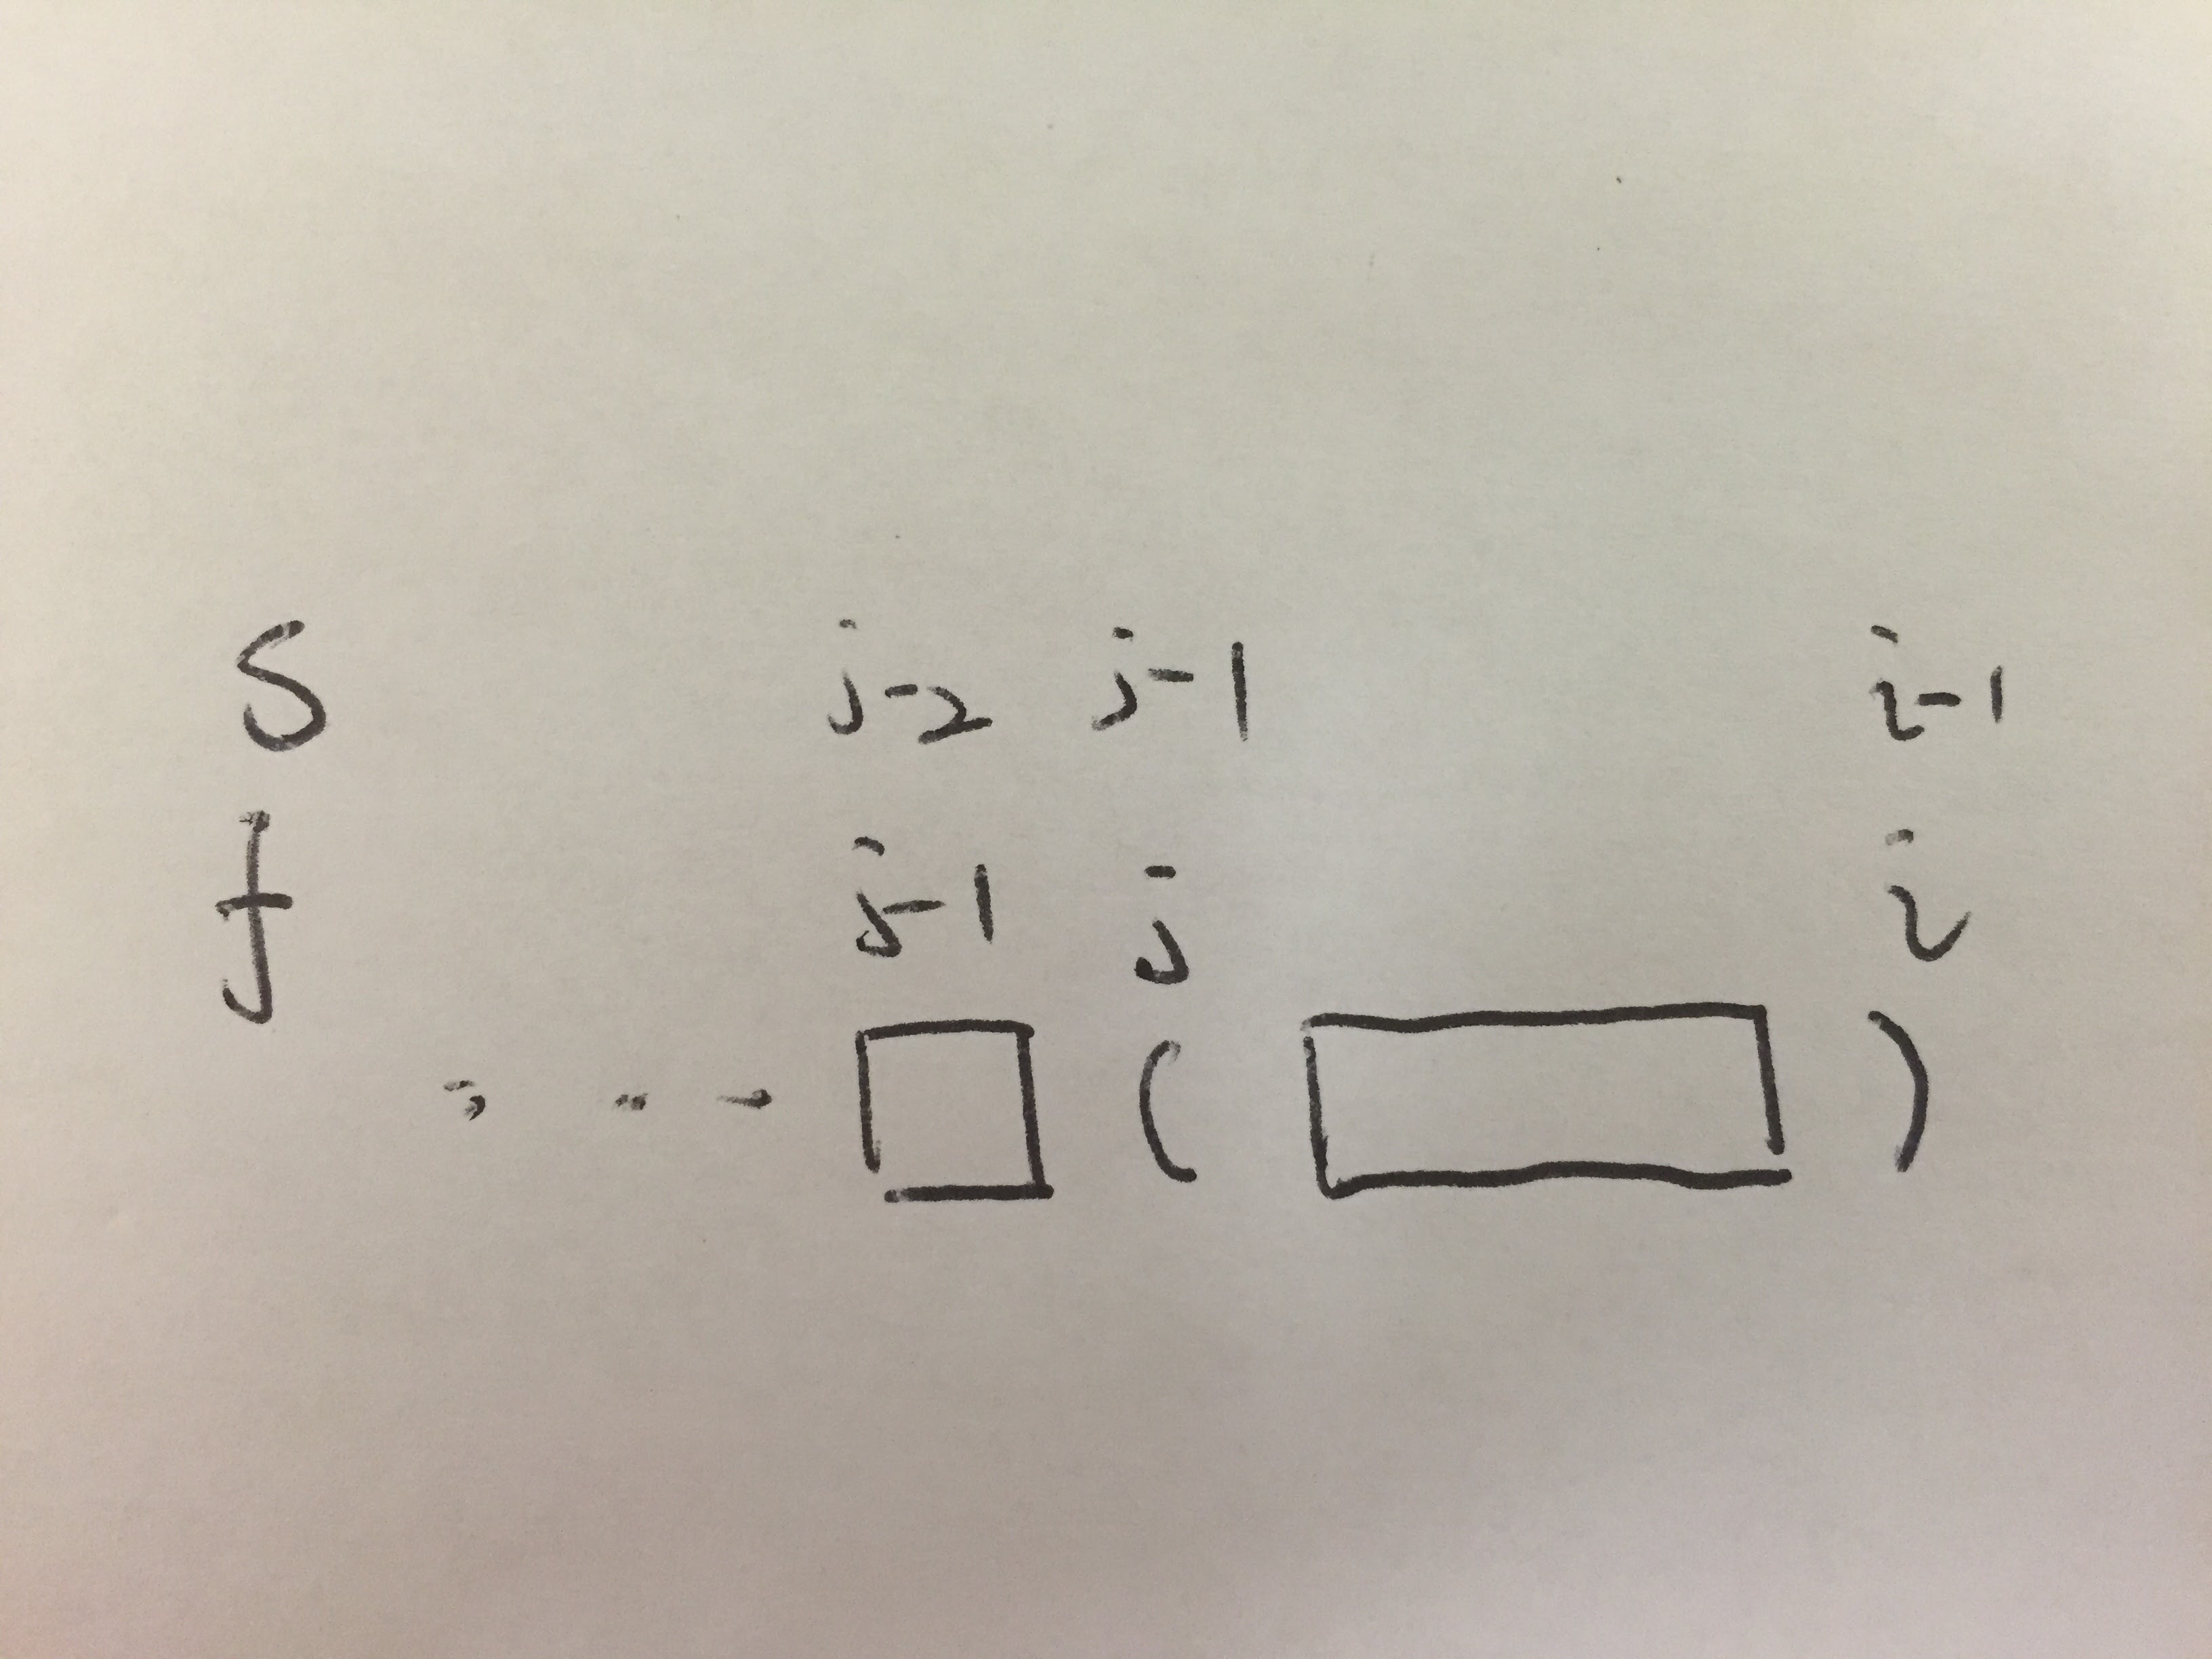 S j-2 j-1 i-1
f j-1 j i
... ( )